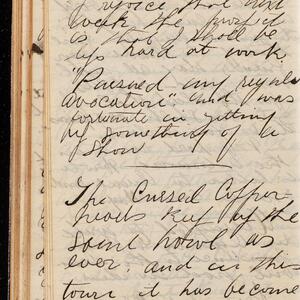 I rejoice that next
week the
is that I shall be
up hard at work.
"Pursued my regular
avocation" and was
fortunate in getting
up something of a
show
The Cursed Copper-
heads Keep up the
same howl as
ever, and in this
town it has become